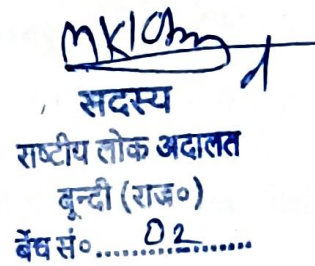 सदस्य
राष्टीय लोक अदालत
बून्दी (राज०)
बेंच सं०......02......